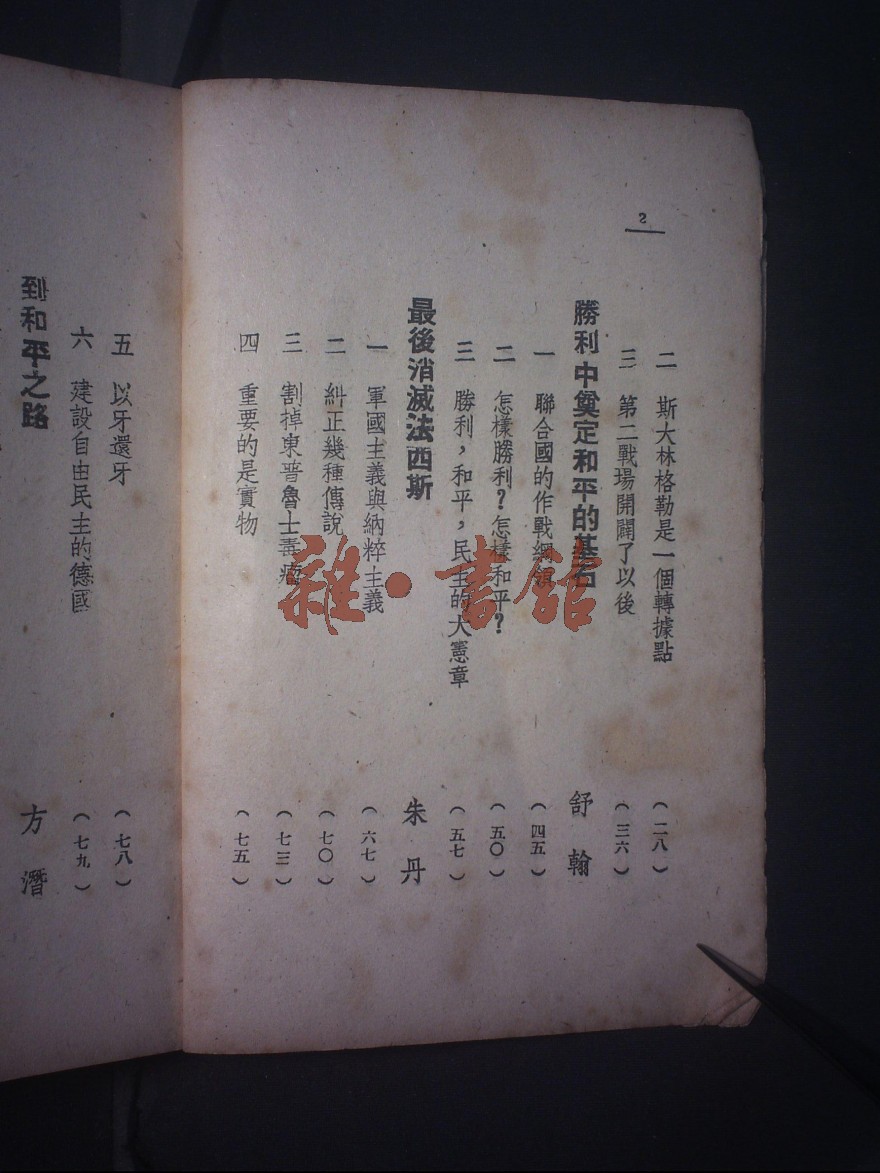 2
二　斯大林格勒是一個轉據點　（二八）
三　第二戰場開闢了以後　（三六）
勝利中奠定和平的基石　舒翰
一　聯合國的作戰綱領　（四五）
二　怎樣勝利？怎樣和平？　（五〇）
三　勝利，和平，民主的大憲章　（五七）
最後消滅法西斯　朱丹
一　軍國主義與納粹主義　（六七）
二　糾正幾種傳說　（七〇）
三　割掉東普魯士毒瘤　（七三）
四　重要的是實物　（七五）
五　以牙還牙　（七八）
六　建設自由民主的德國　（七九）
到和平之路　方潛
雜·書館